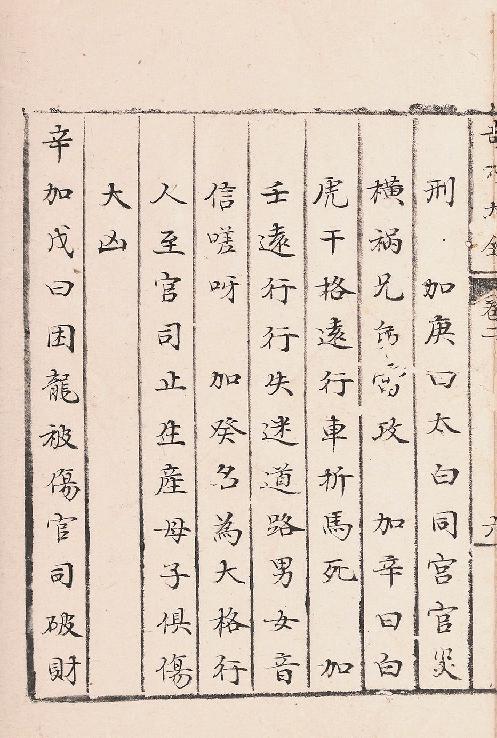 卷二
刑 加庚曰太白同宮官災
橫禍兄弟雷攻 加辛曰白
虎干格遠行車折馬死 加
壬遠行行失迷道路男女音
信嗟呀 加癸名為大格行
人至官司止生產母子俱傷
大凶
辛加戊曰困龍被傷官司破財